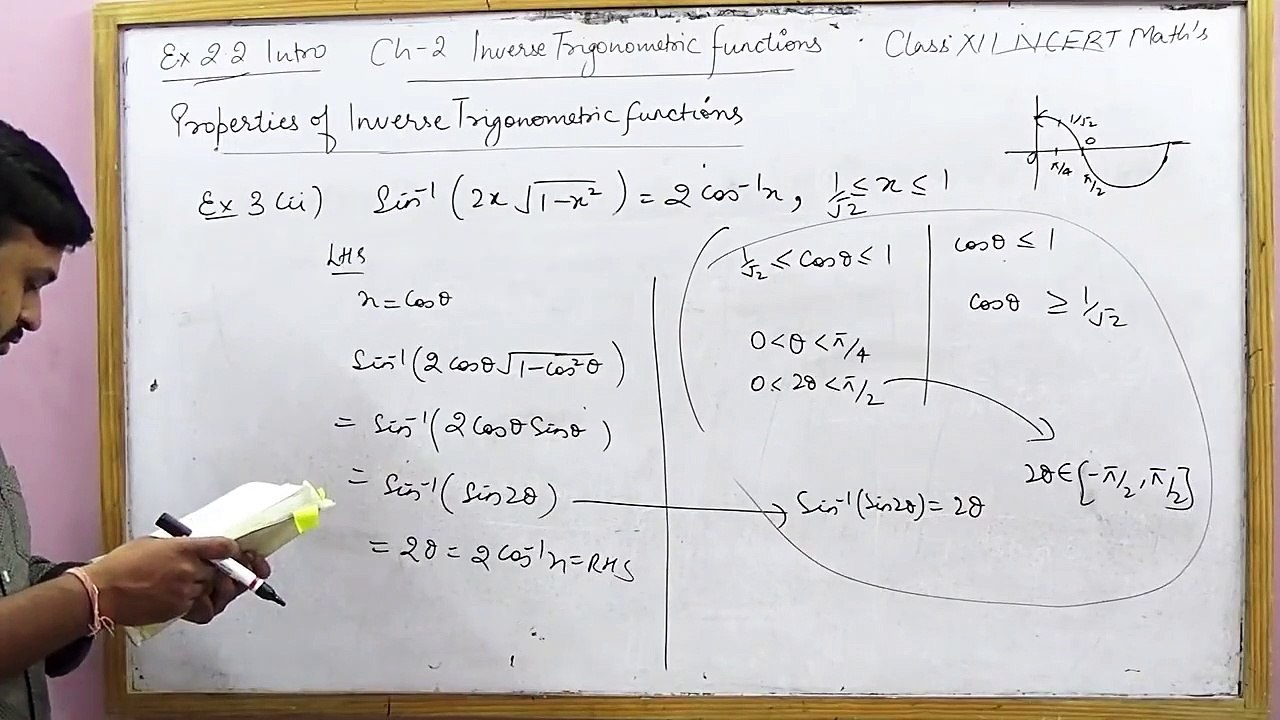 Ex 2.2 Intro Ch-2 Inverse Trigonometric functions . Class XII NCERT Math's
Properties of Inverse Trigonometric functions
1/√2
0
0
π/4
π/2
Ex 3 (ii) Sin⁻¹ (2x √1-x²) = 2 cos⁻¹x, 1/√2 ≤ x ≤ 1
LHS
x = cosθ
Sin⁻¹(2 cosθ √1-cos²θ)
= Sin⁻¹(2 cosθ Sinθ)
= Sin⁻¹(Sin2θ)
= 2θ = 2 cos⁻¹x = RHS
1/√2 ≤ cosθ ≤ 1
0 < θ < π/4
0 < 2θ < π/2
cosθ ≤ 1
cosθ ≥ 1/√2
2θ ∈ [-π/2, π/2]
Sin⁻¹(Sin2θ) = 2θ